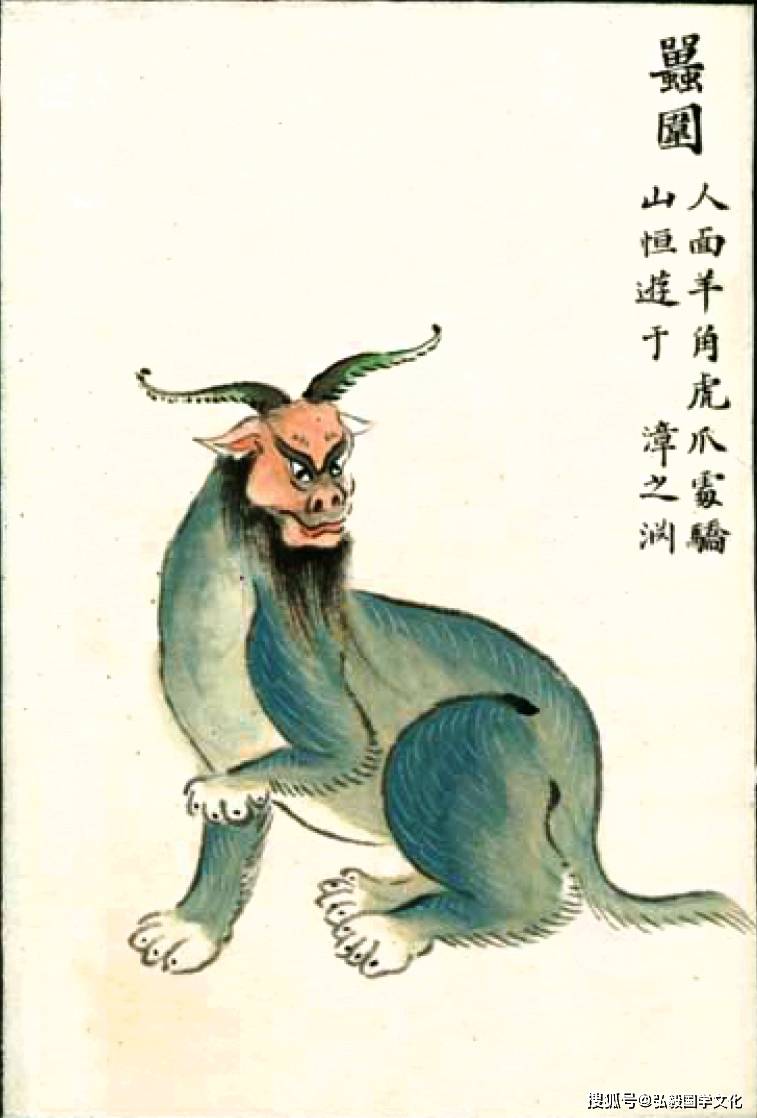 𧕦圍
人面羊角虎爪處驕
山恒遊于 漳之渊
搜狐号@弘毅国学文化